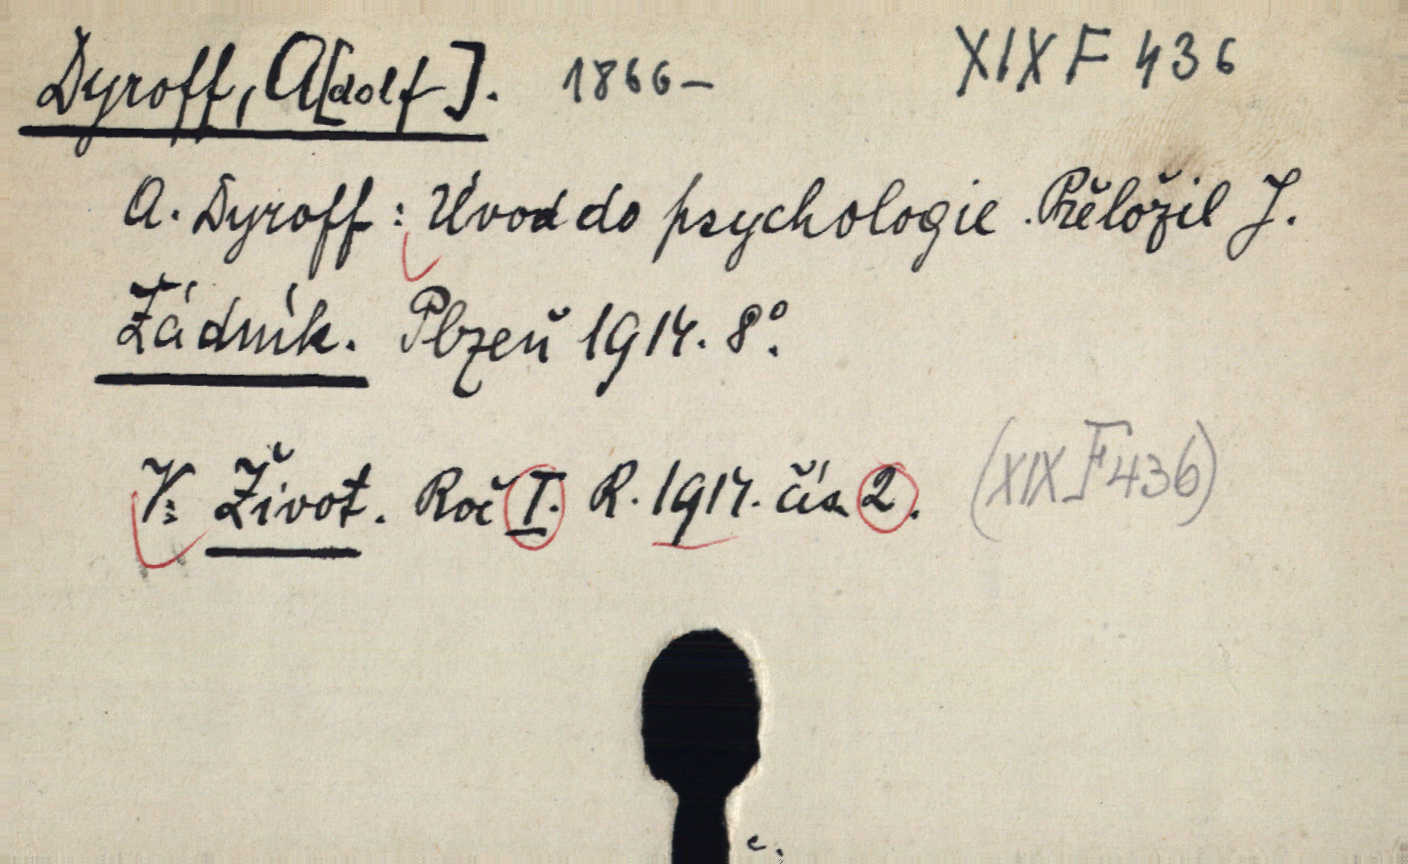 Dyroff, A[dolf]. 1866– XIX F 436
A. Dyroff: Úvod do psychologie. Přeložil J.
Žádník. Plzeň 1914. 8°.
V: Život. Roč I. R. 1914. čís. 2. (XIX F 436)
c.